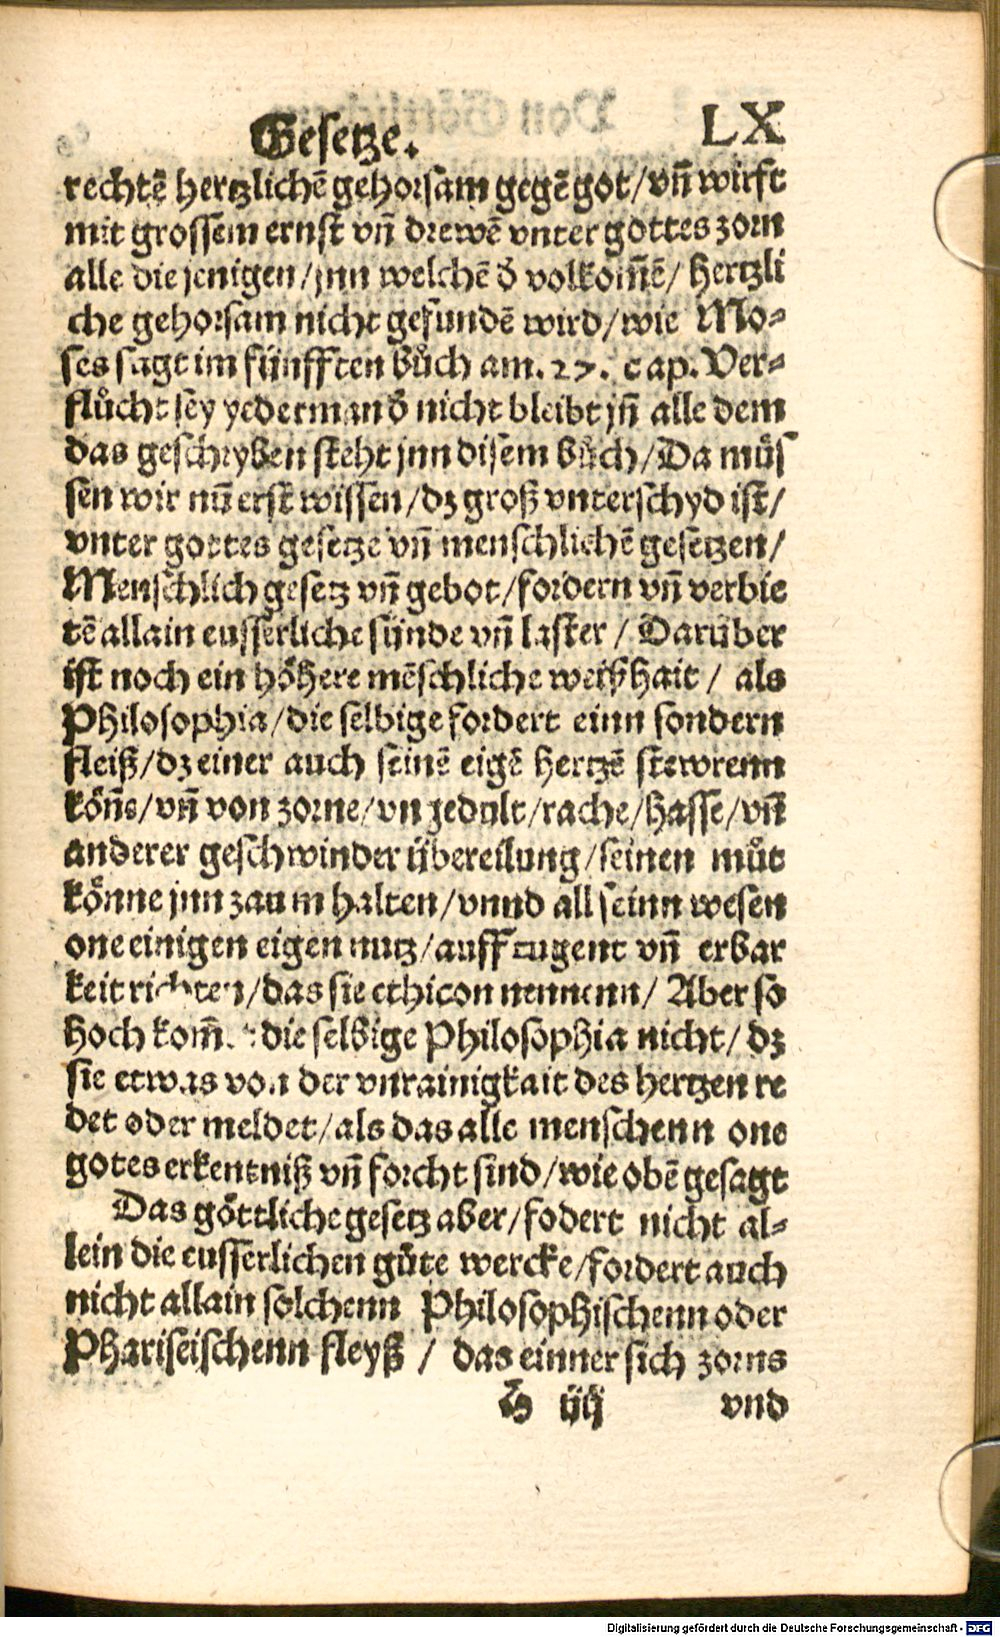 Gesetze. LX
rechtē hertzlichē gehorsam gegē got/vn̄ wirft
mit grossem ernst vn̄ drewē vnter gottes zorn
alle die jenigen/jnn welchē d̄ volkom̄ē/ hertzli
che gehorsam nicht gefundē wird/wie Mo-
ses sagt im fünfften bůch am. 27. cap. Ver-
flůcht sey yederman d̄ nicht bleibt jn̄ alle dem
das geschryben steht jnn disem bůch/Da můs
sen wir nū erst wissen/dz groß vnterschyd ist/
vnter gottes gesetze vn̄ menschlichē gesetzen/
Menschlich gesetz vn̄ gebot/fordern vn̄ verbie
tē allain eusserliche sünde vn̄ laster / Darüber
ist noch ein höhere mēschliche weißhait / als
Philosophia/die selbige fordert einn sondern
fleiß/dz einer auch seinē eigē hertzē stewrenn
kön̄e/vn̄ von zorne/vn gedult/rache/hasse/vn̄
anderer geschwinder übereilung/seinen můt
könne jnn zaum halten/vnnd all seinn wesen
one einigen eigen nutz/auff tugent vn̄ erbar
keit richten/das sie ethicon nennenn/ Aber so
hoch kom̄et die selbige Philosophia nicht/ dz
sie etwas von der vnrainigkait des hertzen re
det oder meldet/als das alle menschenn one
gotes erkentniß vn̄ forcht sind/wie obē gesagt
Das göttliche gesetz aber/fodert nicht al-
lein die eusserlichen gůte wercke/fordert auch
nicht allain solchenn Philosophischenn oder
Phariseischenn fleyß / das einner sich zorns
iij vnd
Digitalisierung gefördert durch die Deutsche Forschungsgemeinschaft - DFG